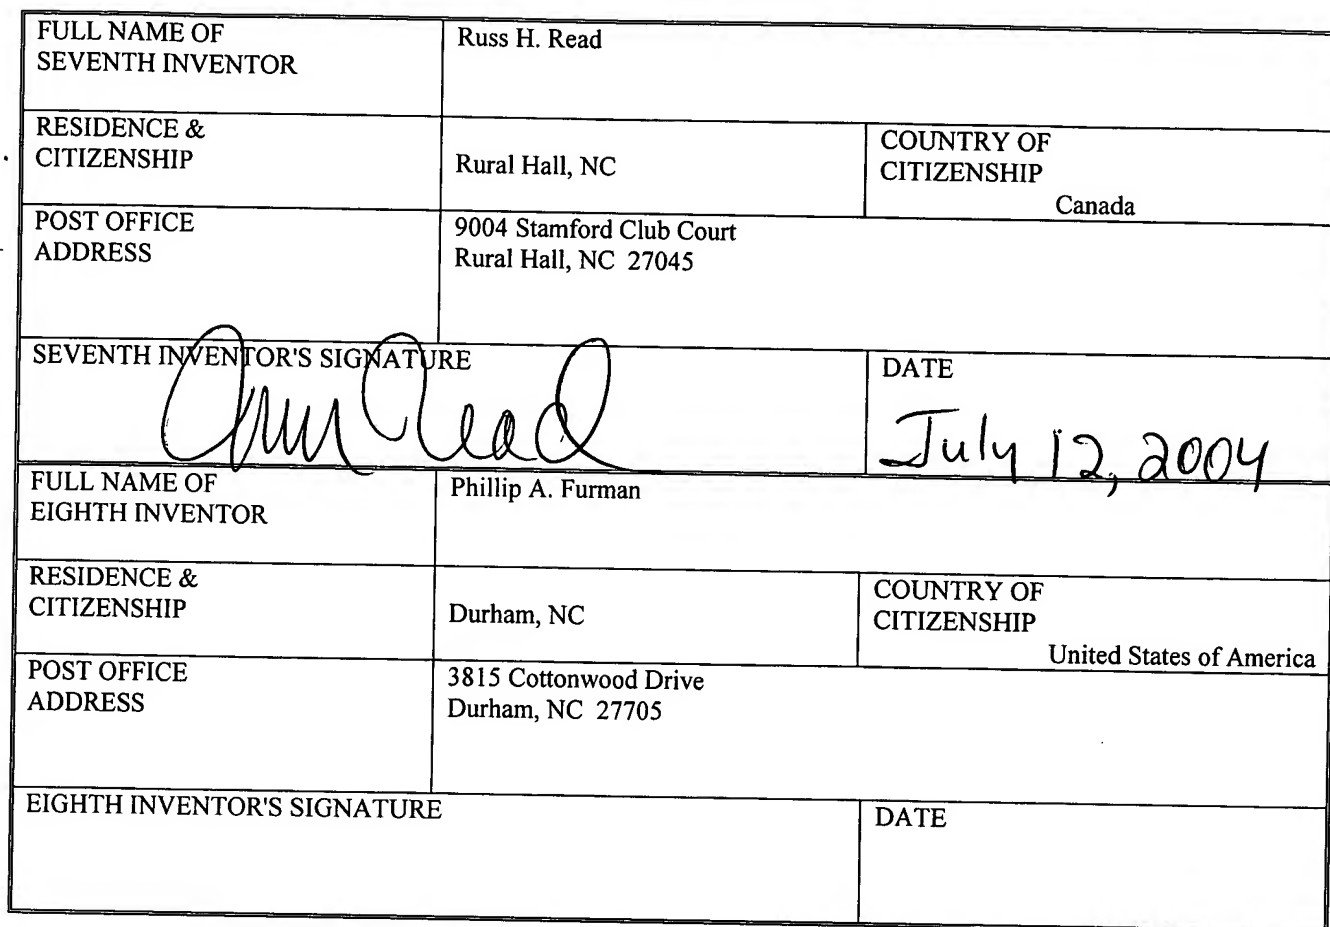 FULL NAME OF
SEVENTH INVENTOR
Russ H. Read
RESIDENCE &
CITIZENSHIP
Rural Hall, NC
COUNTRY OF
CITIZENSHIP
Canada
POST OFFICE
ADDRESS
9004 Stamford Club Court
Rural Hall, NC 27045
SEVENTH INVENTOR'S SIGNATURE
Read
DATE
July 12, 2004
FULL NAME OF
EIGHTH INVENTOR
Phillip A. Furman
RESIDENCE &
CITIZENSHIP
Durham, NC
COUNTRY OF
CITIZENSHIP
United States of America
POST OFFICE
ADDRESS
3815 Cottonwood Drive
Durham, NC 27705
EIGHTH INVENTOR'S SIGNATURE
DATE